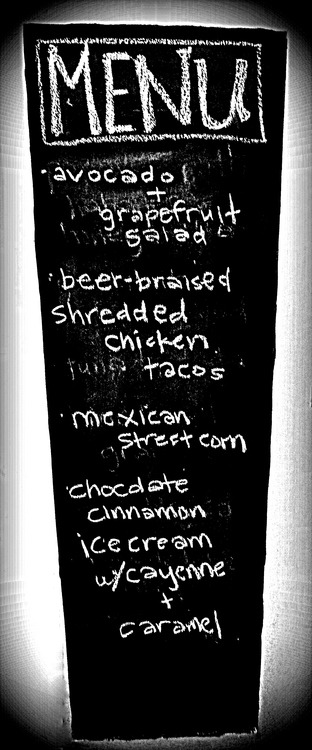 MENU
· avocado
+
grapefruit
salad
· beer-braised
shredded
chicken
tacos
· mexican
street corn
· chocolate
cinnamon
ice cream
w/cayenne
+
caramel